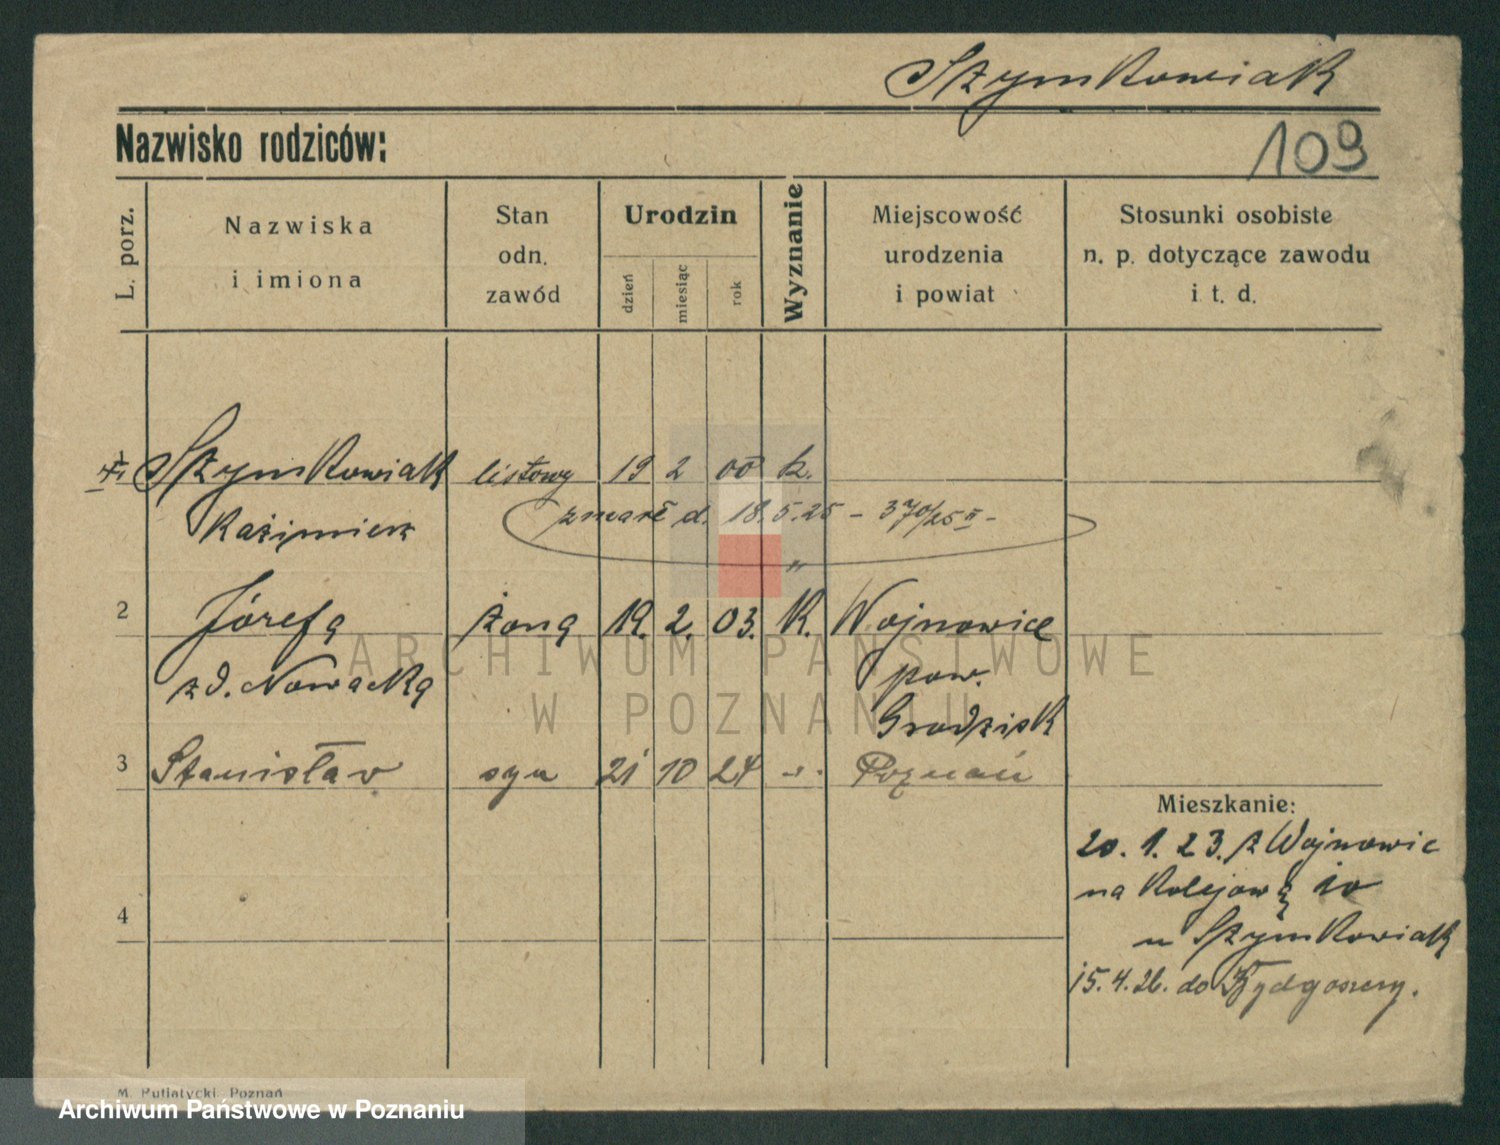 Szymkowiak
Nazwisko rodziców:
109
L. porz.
Nazwiska
i imiona
Stan
odn.
zawód
Urodzin
dzień
miesiąc
rok
Wyznanie
Miejscowość
urodzenia
i powiat
Stosunki osobiste
n. p. dotyczące zawodu
i t. d.
Szymkowiak listowy 19 2 00 k.
Kaźimierz
zmarł d. 18.5.25 – 370/25 II –
"
2 Józefa żona 19. 2. 03. K. Wojnowice
z d. Nowacka pow.
Grodzisk
3 Stanisław syn 21 10 24 -"- Poznań
Mieszkanie:
20. 1. 23. z Wojnowic
na Kolejową 10
4
u Szymkowiak
15.4.26. do Bydgoszczy.
M. Putiatycki, Poznań
ARCHIWUM PAŃSTWOWE
W POZNANIU
Archiwum Państwowe w Poznaniu